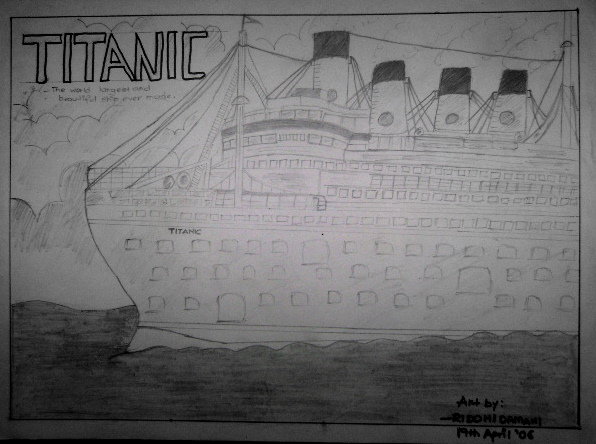 TITANIC
- The world largest and
beautiful ship ever made.
TITANIC
Art by:
- RIDDHI DAMANI
19th April '06